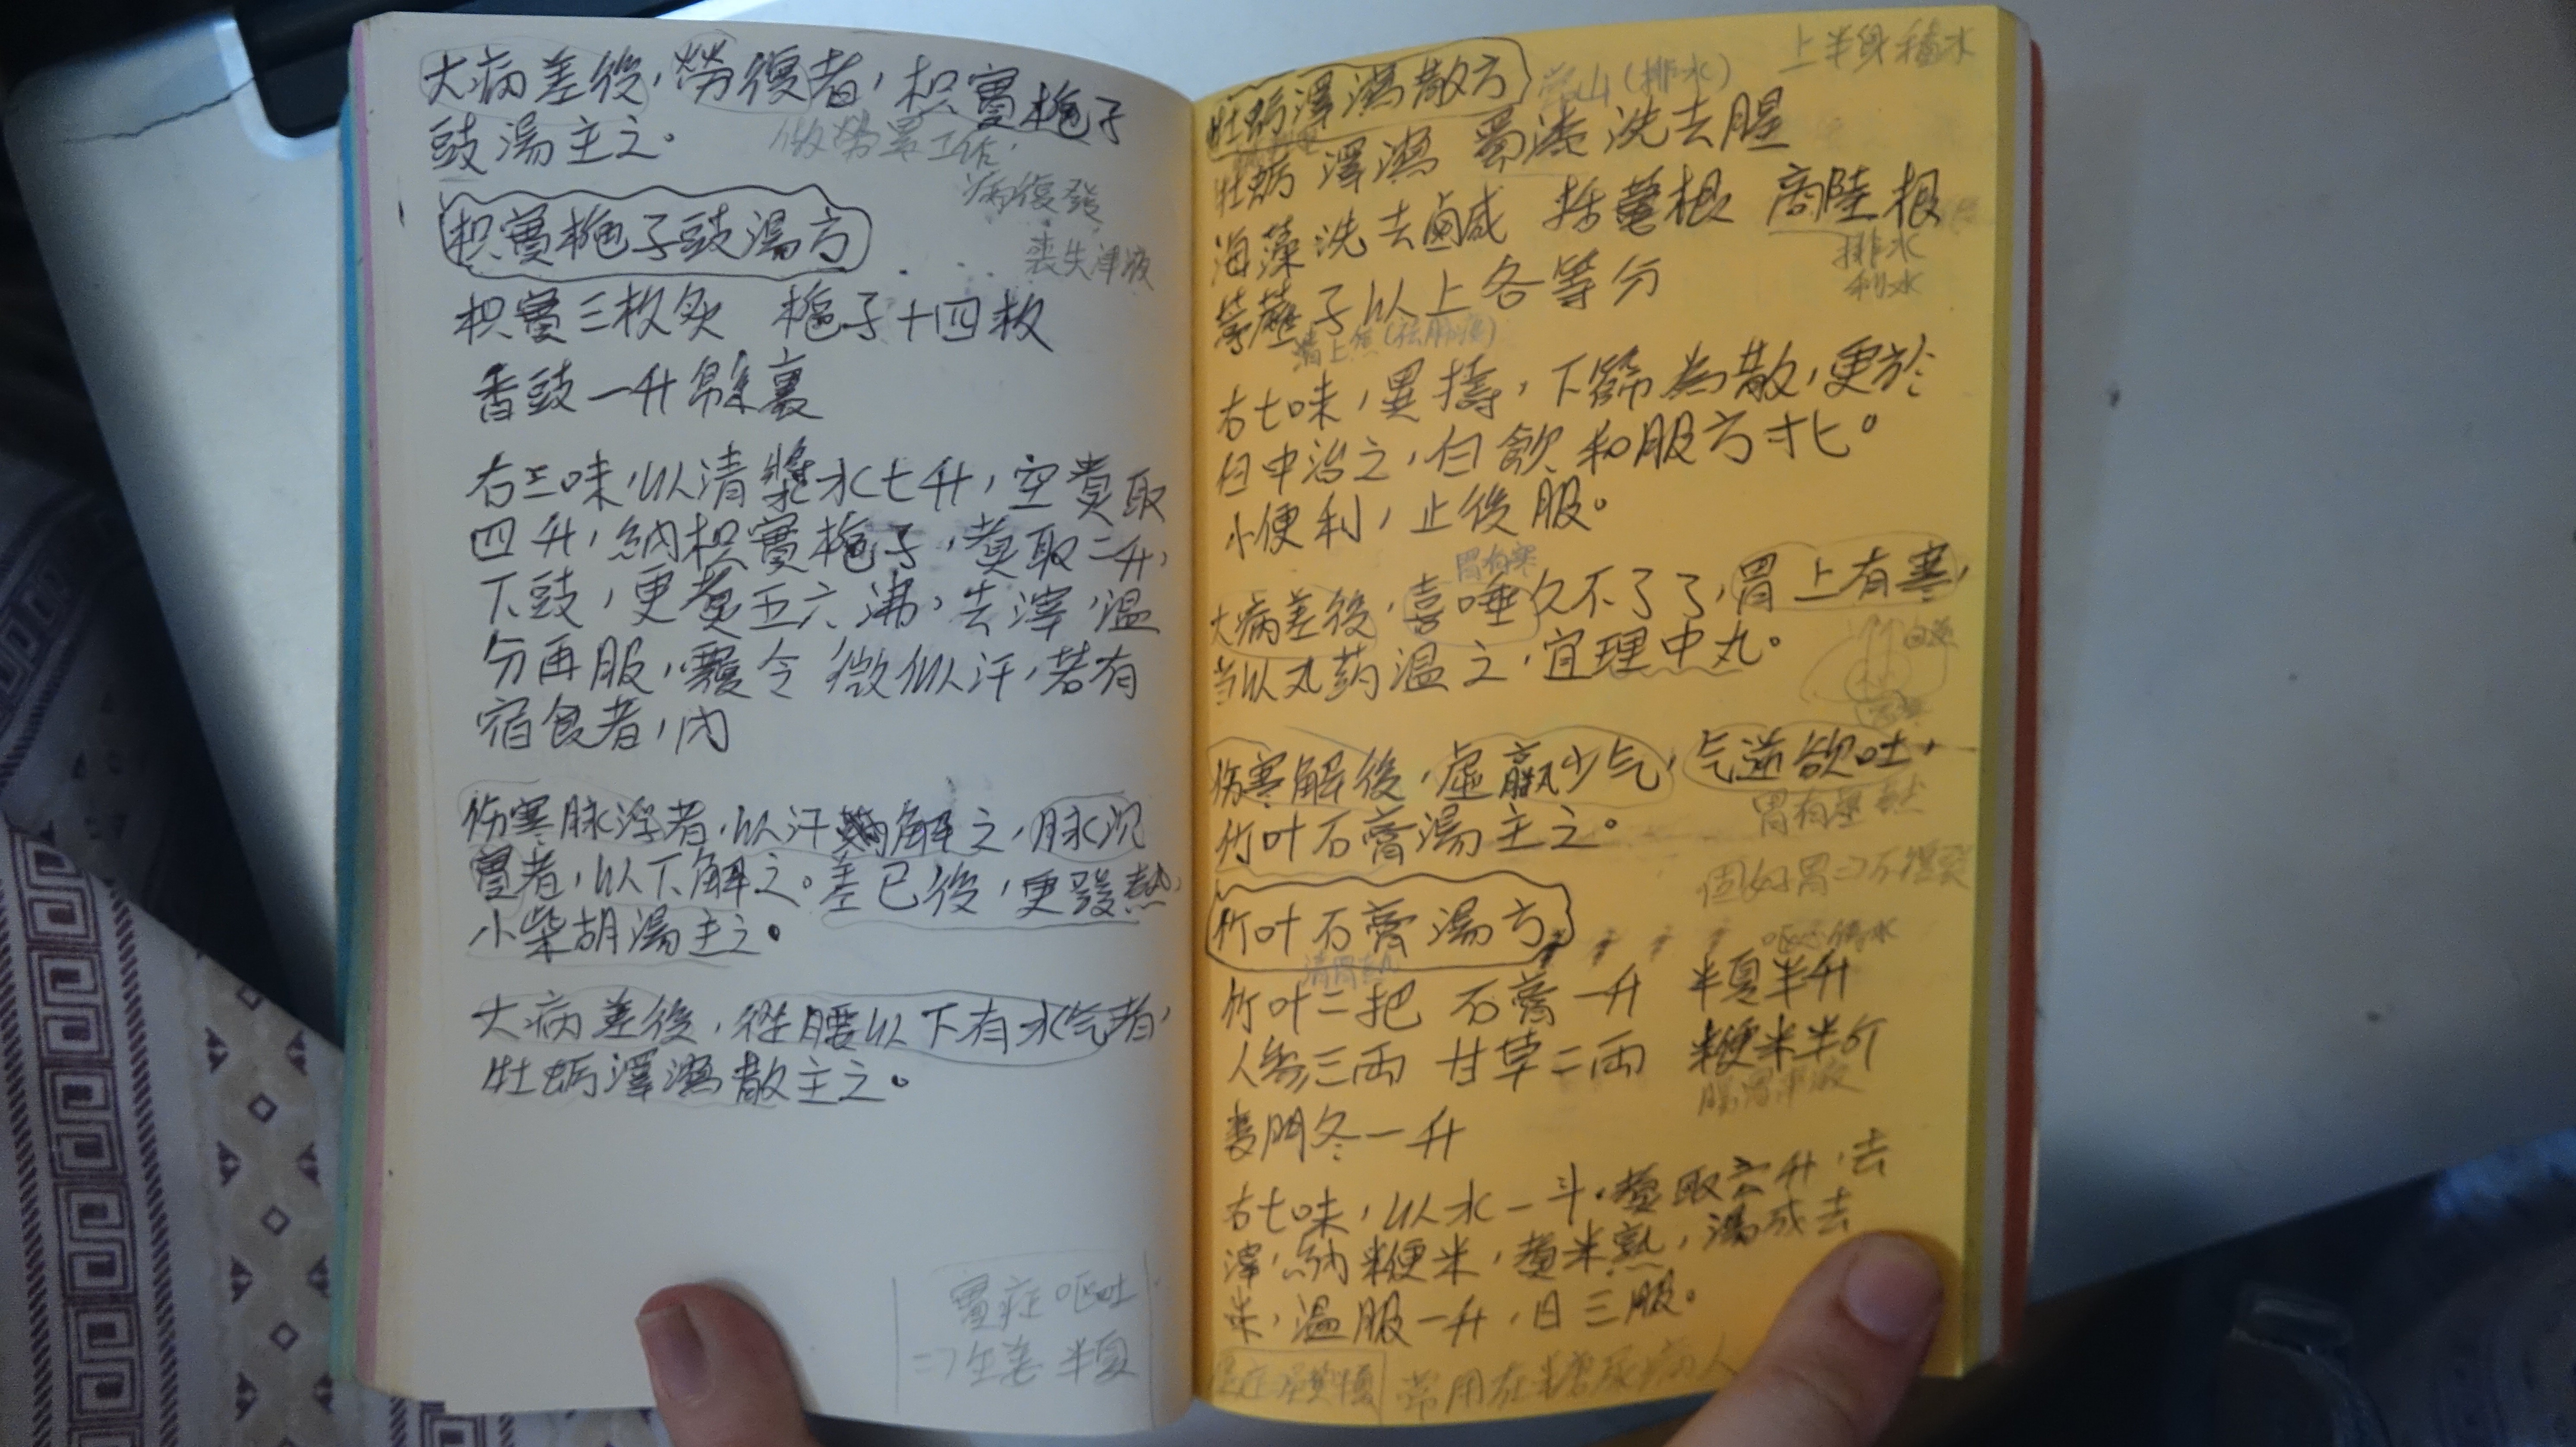 大病差後，勞復者，枳實梔子
豉湯主之。
做勞累工作，
病復發
喪失津液
枳實梔子豉湯方
枳實三枚炙 梔子十四枚
香豉一升綿裹
右三味，以清漿水七升，空煮取
四升，納枳實梔子，煮取二升，
下豉，更煮五六沸，去滓，溫
分再服，覆令微似汗，若有
宿食者，內
伤寒脉浮者，以汗解之，脉沉
實者，以下解之。差已後，更發熱，
小柴胡湯主之。
大病差後，從腰以下有水气者，
牡蛎澤瀉散主之。
實症嘔吐
=7生姜半夏
上半身積水
牡蛎澤瀉散方
常山(排水)
牡蛎 澤瀉 蜀漆洗去腥
海藻洗去鹹 括蔞根 商陸根
排水
利水
葶藶子以上各等分
右七味，異擣，下篩為散，更於
臼中治之，白飲和服方寸匕。
小便利，止後服。
胃有寒
大病差後，喜唾久不了了，胃上有寒，
当以丸药溫之，宜理中丸。
伤寒解後，虛羸少气，气逆欲吐，
竹叶石膏湯主之。
胃有虛熱
竹叶石膏湯方
清胃熱
竹叶二把 石膏一升 半夏半升
人参三两 甘草二两 粳米半斤
腸胃津液
麦門冬一升
右七味，以水一斗，煮取六升，去
滓，納粳米，煮米熟，湯成去
米，溫服一升，日三服。
常用在糖尿病人